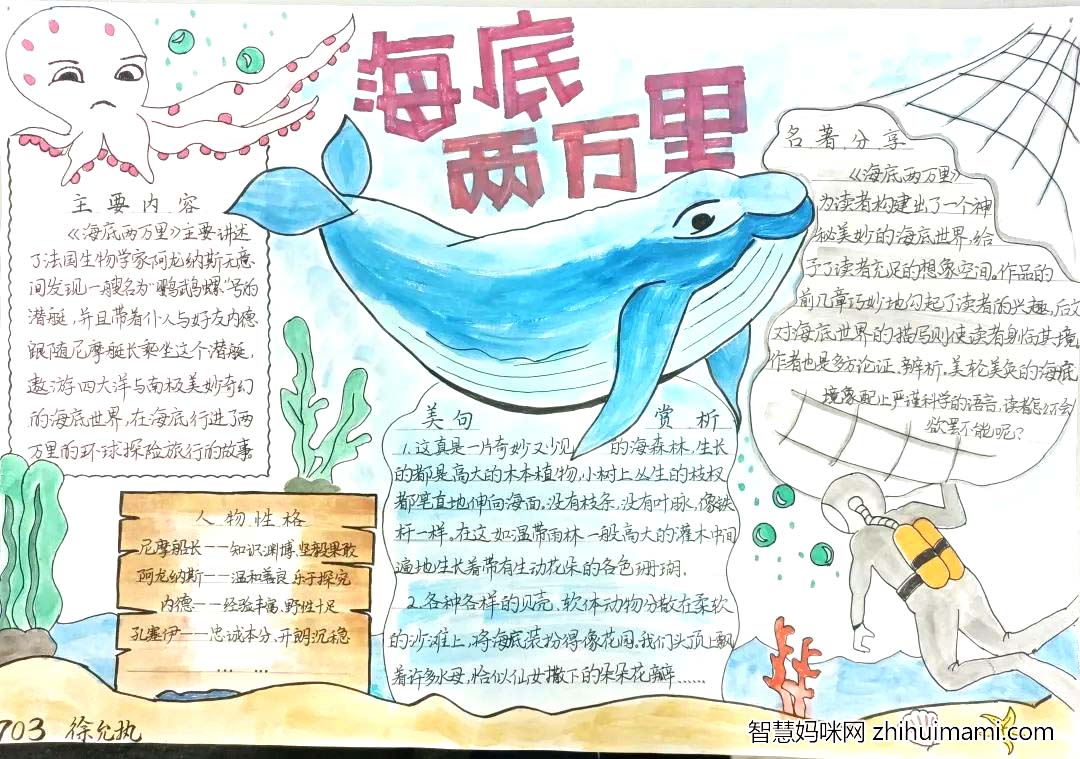 海底
两万里
主要内容
《海底两万里》主要讲述
了法国生物学家阿龙纳斯无意
间发现一艘名为"鹦鹉螺"号的
潜艇，并且带着仆人与好友内德
跟随尼摩艇长乘坐这个潜艇，
遨游四大洋与南极美妙奇幻
的海底世界，在海底行进了两
万里的环球探险旅行的故事
人物性格
尼摩船长——知识渊博、坚毅果敢
阿龙纳斯——温和善良、乐于探究
内德——经验丰富、野性十足
孔塞伊——忠诚本分、开朗沉稳
... ...
美句 赏析
1.这真是一片奇妙又少见的海森林，生长
的都是高大的木本植物，小树上丛生的枝杈
都笔直地伸向海面。没有枝条，没有叶脉，像铁
杆一样。在这如温带雨林一般高大的灌木中间
遍地生长着带有生动花朵的各色珊瑚.
2.各种各样的贝壳、软体动物分散在柔软
的沙滩上，将海底装扮得像花园。我们头顶上飘
着许多水母，恰似仙女撒下的朵朵花瓣……
名著分享
《海底两万里》
为读者构建出了一个神
秘美妙的海底世界，给
予了读者充足的想象空间。作品的
前几章巧妙地勾起了读者的兴趣，后文
对海底世界的描写则使读者身临其境，
作者也是多方论证、辩析。美轮美奂的海底
境象配上严谨科学的语言，读者怎么不会
欲罢不能呢？
703 徐允执
智慧妈咪网 zhihuimami.com